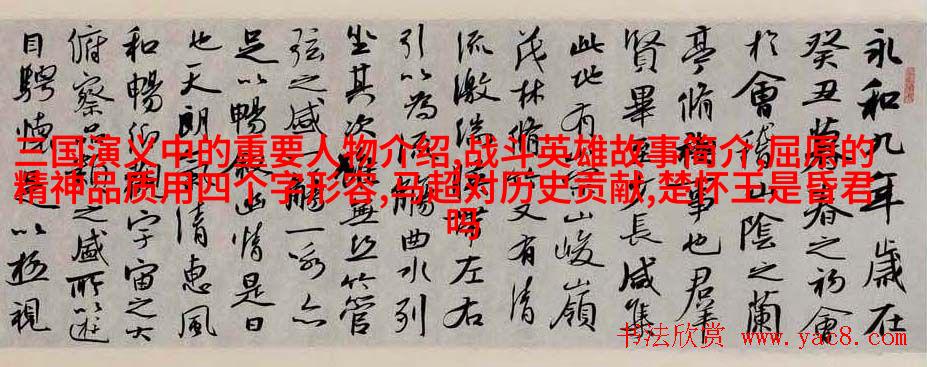 三国演义中的重要人物介绍,战斗英雄故事简介,屈原的
精神品质用四个字形容,马超对历史贡献,楚怀王是昏君
吗
永和九年歲在
癸丑暮春之初會
於會稽山陰之蘭
亭脩事也羣
賢畢長咸集
此地有山峻嶺
茂林脩又有清
流激湍帶左右
引以為觴曲水列
坐其次雖無絲竹管
弦之盛一詠亦
足以暢幽情是日
也天朗清惠風
和暢仰宇宙之大
俯察品類之盛所以遊
目騁懷以極視
书法欣赏 www.yac8.com